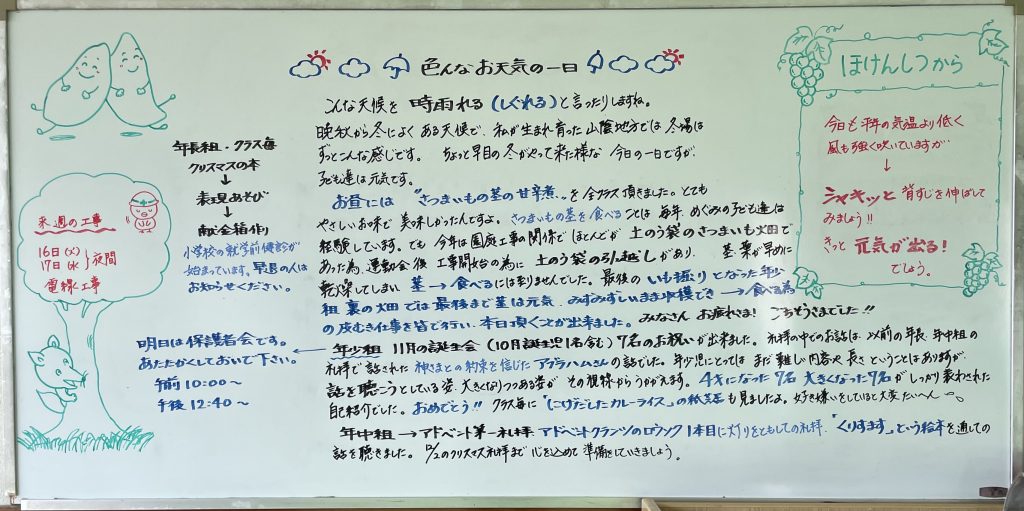 色んなお天気の一日
こんな天候を 時雨れる（しぐれる）と言ったりしますね。
晩秋から冬によくある天候で、私が生まれ育った山陰地方では冬場は
ずっとこんな感じです。 ちょっと早目の冬がやって来た様な 今日の一日ですが、
子ども達は元気です。
お昼には "さつまいもの茎の甘辛煮"を全クラス頂きました。とても
やさしいお味で 美味しかったんですよ。さつまいもの茎を食べることは 毎年、めぐみの子ども達は
経験しています。でも 今年は園庭工事の関係で ほとんどが 土のう袋のさつまいも畑で
あった為、運動会後 工事開始の為に 土のう袋の引越しがあり、 茎・葉が早めに
乾燥してしまい 茎→食べるには至りませんでした。最後のいも掘りとなった年少
組 裏の畑では最後まで茎は元気、みずみずしいまま収穫でき→食べる為
の皮むき仕事を皆で行い、本日頂くことが出来ました。みなさん お疲れさま！ ごちそうさまでした!!
年少組 11月の誕生会（10月誕生児1名含む）7名のお祝いが出来ました。礼拝の中でのお話は、以前の年長、年中組の
礼拝で話された 神さまとの約束を信じたアブラハムさんの話でした。年少児にとっては まだ難しい内容や長さということはありますが、
話を聴こうとしている姿、大きくなりつつある姿が その視線からうかがえます。4才になった7名 大きくなった7名がしっかり表わされた
自己紹介でした。おめでとう!! クラス毎に「にげだしたカレーライス」の紙芝居も見ましたよ。好き嫌いをしていると大変たいへん〜。
年中組→アドベント第一礼拝 アドベントクランツのロウソク1本目に灯りをともしての礼拝、"くりすます"という絵本を通しての
話を聴きました。12/2のクリスマス礼拝まで 心を込めて 準備をしていきましょう。
年長組・クラス毎
クリスマスの本
↓
表現あそび
↓
献金箱作り
小学校の就学前健診が
始まっています。早退の人は
お知らせください。
明日は保護者会です。
あたたかくしておいで下さい。
午前 10:00〜
午後 12:40〜
来週の工事
16日（火）
17日（水）
夜間
電線工事
ほけんしつから
今日も平年の気温より低く
風も強く吹いていますが
↓
シャキッと 背すじを伸ばして
みましょう!!
きっと 元気が出る！
でしょう。